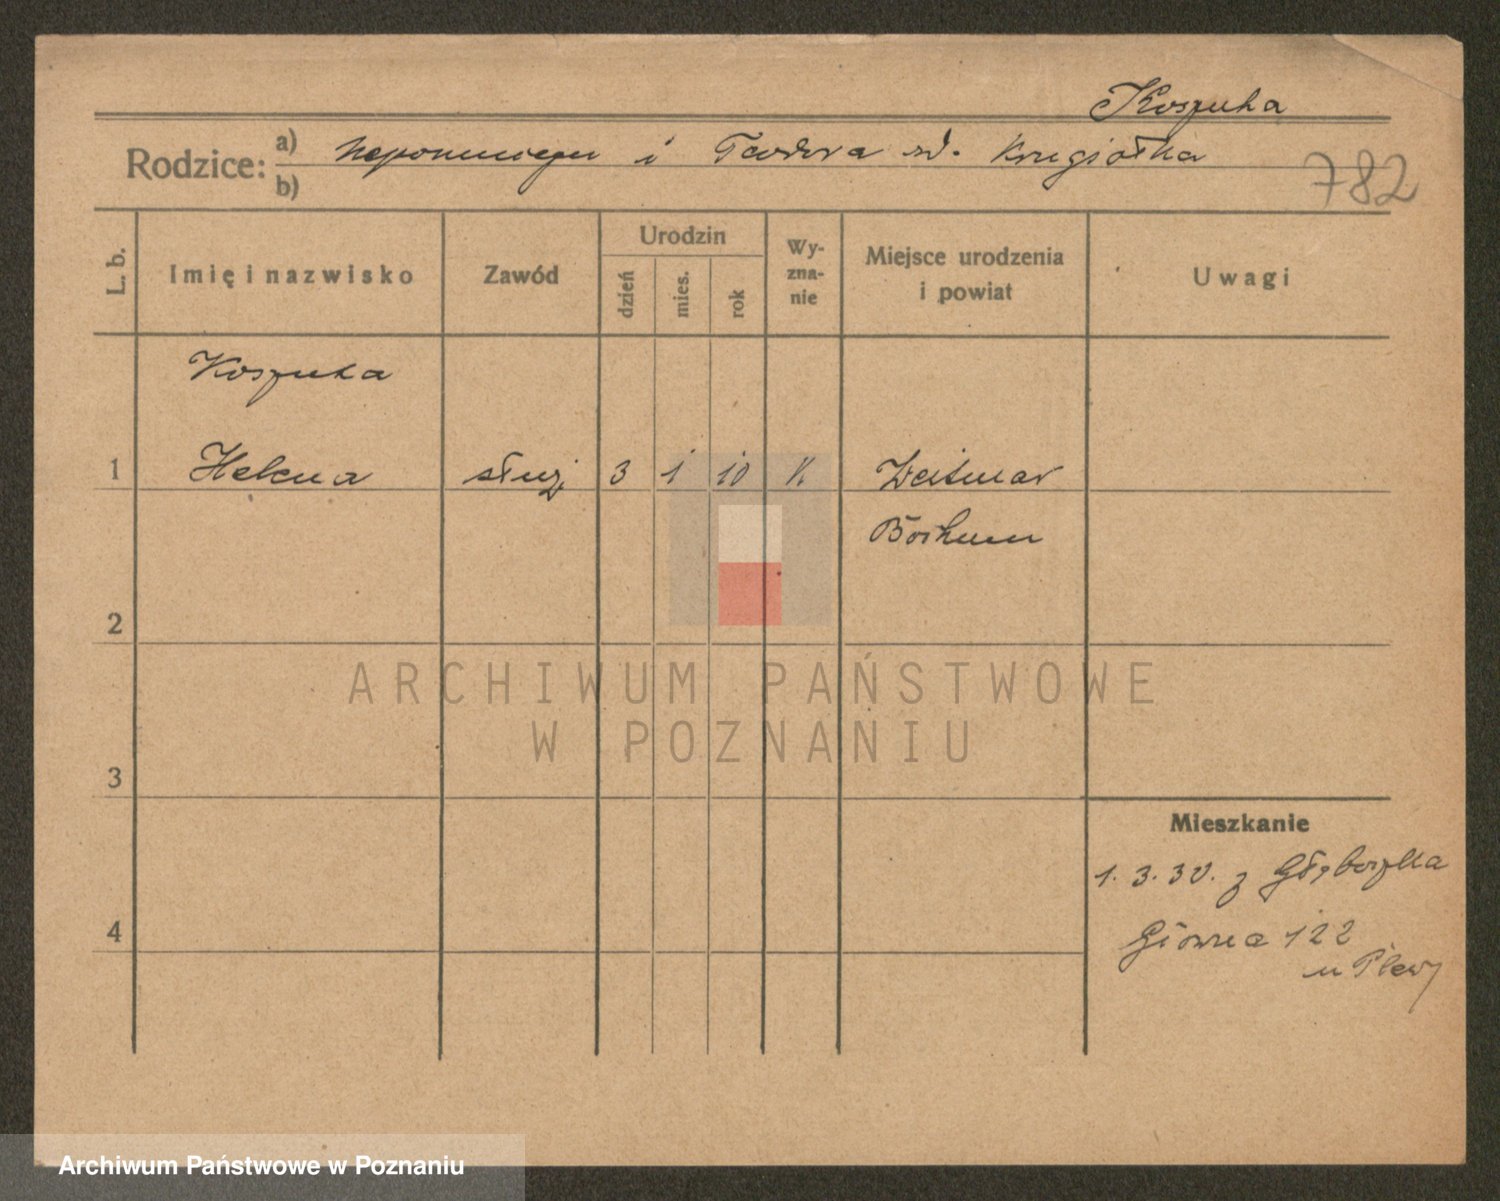 Koszuha
Rodzice: a) i Teodora
b)
782
L. b.
Imię i nazwisko
Zawód
Urodzin
dzień
mies.
rok
Wy-
zna-
nie
Miejsce urodzenia
i powiat
Uwagi
Koszuha
1 Helena służ 3 1 10 K Weitmar
Bochum
2
3
4
Mieszkanie
1. 3. 30. z
Główna 122
u
ARCHIWUM PAŃSTWOWE
W POZNANIU
Archiwum Państwowe w Poznaniu